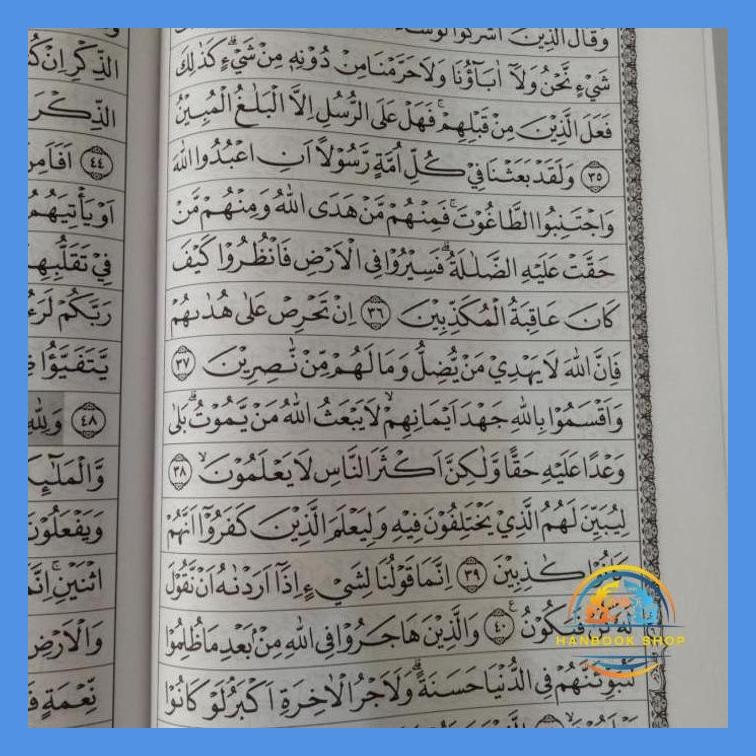 وَقَالَ الَّذِيْنَ اَشْرَكُوْا لَوْ شَاءَ
شَيْءٍ نَّحْنُ وَلَآ اٰبَاۤؤُنَا وَلَا حَرَّمْنَا مِنْ دُوْنِهٖ مِنْ شَيْءٍ ۗ كَذٰلِكَ
فَعَلَ الَّذِيْنَ مِنْ قَبْلِهِمْ ۚ فَهَلْ عَلَى الرُّسُلِ اِلَّا الْبَلٰغُ الْمُبِيْنُ
﴿٣٥﴾ وَلَقَدْ بَعَثْنَا فِيْ كُلِّ اُمَّةٍ رَّسُوْلًا اَنِ اعْبُدُوا اللّٰهَ
وَاجْتَنِبُوا الطَّاغُوْتَ ۚ فَمِنْهُمْ مَّنْ هَدَى اللّٰهُ وَمِنْهُمْ مَّنْ
حَقَّتْ عَلَيْهِ الضَّلٰلَةُ ۗ فَسِيْرُوْا فِى الْاَرْضِ فَانْظُرُوْا كَيْفَ
كَانَ عَاقِبَةُ الْمُكَذِّبِيْنَ ﴿٣٦﴾ اِنْ تَحْرِصْ عَلٰى هُدٰىهُمْ
فَاِنَّ اللّٰهَ لَا يَهْدِيْ مَنْ يُّضِلُّ وَمَا لَهُمْ مِّنْ نّٰصِرِيْنَ ﴿٣٧﴾
وَاَقْسَمُوْا بِاللّٰهِ جَهْدَ اَيْمَانِهِمْ ۙ لَا يَبْعَثُ اللّٰهُ مَنْ يَّمُوْتُ ۗ بَلٰى
وَعْدًا عَلَيْهِ حَقًّا وَّلٰكِنَّ اَكْثَرَ النَّاسِ لَا يَعْلَمُوْنَ ۙ ﴿٣٨﴾
لِيُبَيِّنَ لَهُمُ الَّذِيْ يَخْتَلِفُوْنَ فِيْهِ وَلِيَعْلَمَ الَّذِيْنَ كَفَرُوْٓا اَنَّهُمْ
كَانُوْا كٰذِبِيْنَ ﴿٣٩﴾ اِنَّمَا قَوْلُنَا لِشَيْءٍ اِذَآ اَرَدْنٰهُ اَنْ نَّقُوْلَ
لَهٗ كُنْ فَيَكُوْنُ ﴿٤٠﴾ وَالَّذِيْنَ هَاجَرُوْا فِى اللّٰهِ مِنْ بَعْدِ مَا ظُلِمُوْا
لَنُبَوِّئَنَّهُمْ فِى الدُّنْيَا حَسَنَةً ۗ وَلَاَجْرُ الْاٰخِرَةِ اَكْبَرُ لَوْ كَانُوْا
الذِّكْرِ اِنْ
الذِّكْرَ
﴿٤٤﴾ اَفَاَمِنَ
اَوْ يَأْتِيَهُمُ
فِيْ تَقَلُّبِهِمْ
رَبَّكُمْ
يَّتَفَيَّؤُا
﴿٤٨﴾ وَلِلّٰهِ
وَّالْمَلٰۤىِٕكَةُ
وَيَفْعَلُوْنَ
اثْنَيْنِ ۚ اِنَّمَا
وَالْاَرْضِ
نِّعْمَةٍ
HANBOOK SHOP